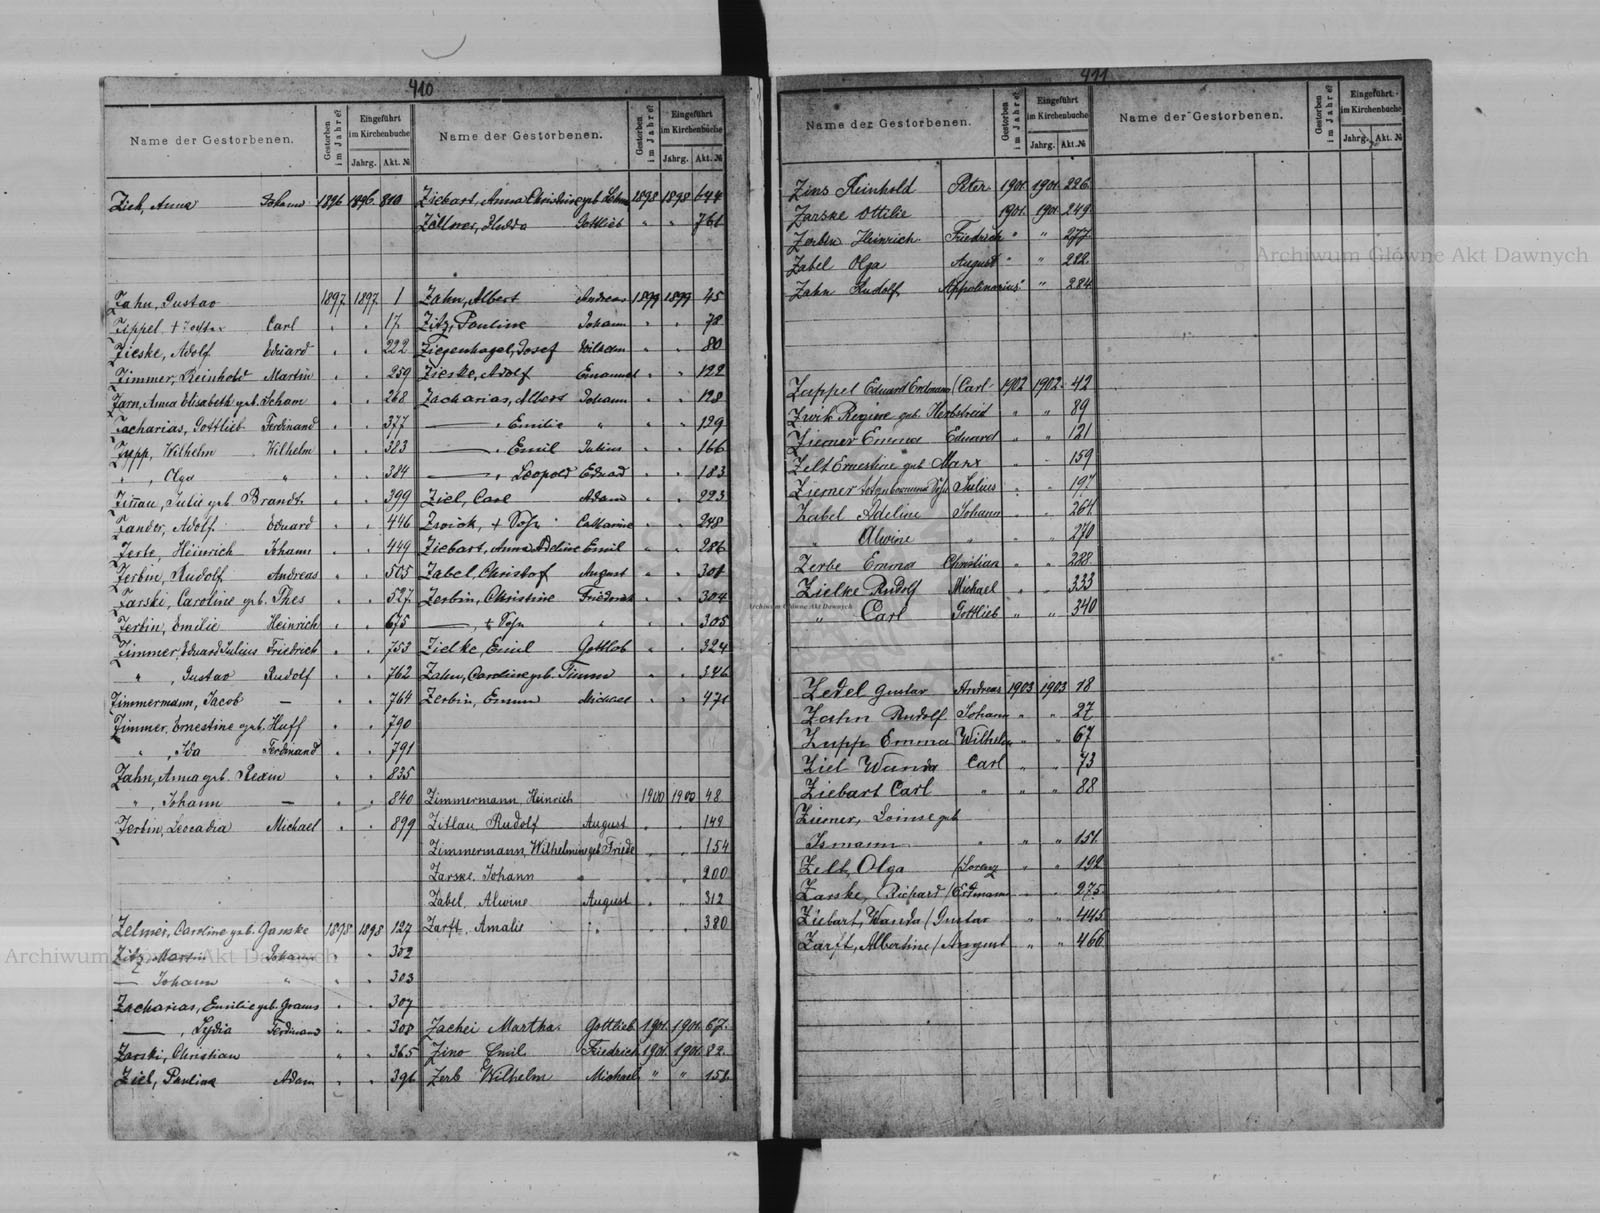 410
Name der Gestorbenen.
Gestorben im Jahre?
Eingeführt im Kirchenbuche
Jahrg. Akt. №
Name der Gestorbenen.
Gestorben im Jahre?
Eingeführt im Kirchenbuche
Jahrg. Akt. №
Zieh, Anna Johann 1896 1896 810
Zahn, Gustav 1897 1897 1
Zippel, + Carl " " 17.
Zieske, Adolf Eduard " " 222
Zimmer, Reinhold Martin " " 259
Zarn, Anna Elisabeth geb. Johann " " 268
Zacharias, Gottlieb Ferdinand " " 377
Zypp, Wilhelm Wilhelm " " 383
" , Olga " " " 384
Ziñau, Julie geb. Brandt " " 399
Zander, Adolf Eduard " " 446
Zerbe, Heinrich Johann " " 449
Zerbin, Rudolf Andreas " " 505
Zarski, Caroline geb. Thes " " 527
Zerbin, Emilie Heinrich " " 675
Zimmer, Eduard Julius Friedrich " " 753
" , Gustav Rudolf " " 762
Zimmermann, Jacob — " " 764
Zimmer, Ernestine geb. Huff " " 790
" , Ida Ferdinand " " 791
Zahn, Anna geb. Rexin " " 835
" , Johann — " " 840
Zerbin, Leocadia Michael " " 899
Zelmer, Caroline geb. Ganske 1898 1898 127
Zitz, Martin Johann " " 302
— Johann " " " 303
Zacharias, Emilie geb. Grams " " 307
— , Lydia Ferdinand " " 308
Zarski, Christian " " 365
Ziel, Pauline Adam " " 396
Ziebart, Anna Christine geb. 1898 1898 644
Zöllner, Hulda Gottlieb " " 761
Zahn, Albert Andreas 1899 1899 45
Zitz, Pauline Johann " " 78
Ziegenhagel, Josef Wilhelm " " 80
Zieske, Adolf Emanuel " " 122
Zacharias, Albert Johann " " 128
— , Emilie " " " 129
— , Emil Julius " " 166
— , Leopold Eduad " " 183
Ziel, Carl Adam " " 223
Zwick, + Sohn Catharine " " 248
Ziebart, Anna Adeline Emil " " 286
Zabel, Christof August " " 301
Zerbin, Christine Friedrich " " 304
— , + Sohn " " " 305
Zielke, Emil Gottlob " " 324
Zahn, Caroline geb. Timm " " 346
Zerbin, Emma Michael " " 471
Zimmermann, Heinrich 1900 1900 48
Zittau, Rudolf August " " 149
Zimmermann, Wilhelmine geb. Friede " " 154
Zarske, Johann " " " 200
Zabel, Alwine August " " 312
Zarft, Amalie " " " 380
Zachei Martha Gottlieb 1901 1901 67.
Zino Emil Friedrich 1901 1901 82.
Zerb Wilhelm Michael " " 158
411
Name der Gestorbenen.
Gestorben im Jahre?
Eingeführt im Kirchenbuche
Jahrg. Akt. №
Name der Gestorbenen.
Gestorben im Jahre?
Eingeführt im Kirchenbuche
Jahrg. Akt. №
Zins Reinhold Peter 1901 1901 226
Zarske Ottilie 1901 1901 249
Zerbin Heinrich Friedrich " " 277
Zabel Olga August " " 282
Zahn Rudolf Appolinarius " " 284
Zuppel Eduard Erdmann Carl 1902 1902 42
Zwik Regine geb. Herbstreid " " 89
Ziemer Emma Eduard " " 121
Zelt Ernestine geb. Marx " " 159
Ziemer totgeborener Sohn Julius " " 197
Zabel Adeline Johann " " 264
" Alwine " " " 270
Zerbe Emma Christian " " 288
Zielke Rudolf Michael " " 333
" Carl Gottlieb " " 340
Zedel Gustav Andreas 1903 1903 18
Zahn Rudolf Johann " " 27
Zupp Emma Wilhelm " " 67
Ziel Wanda Carl " " 73
Ziebart Carl " " " 88
Ziemer, Louise geb
Ismann " " " 151
Zelt, Olga (Lorenz " " 192
Zarske, Richard (Erdmann " " 275
Ziebart, Wanda (Gustav " " 445
Zarft, Albertine (August " " 466
Archiwum Główne Akt Dawnych
Archiwum Główne Akt Dawnych
Archiwum Główne Akt Dawnych